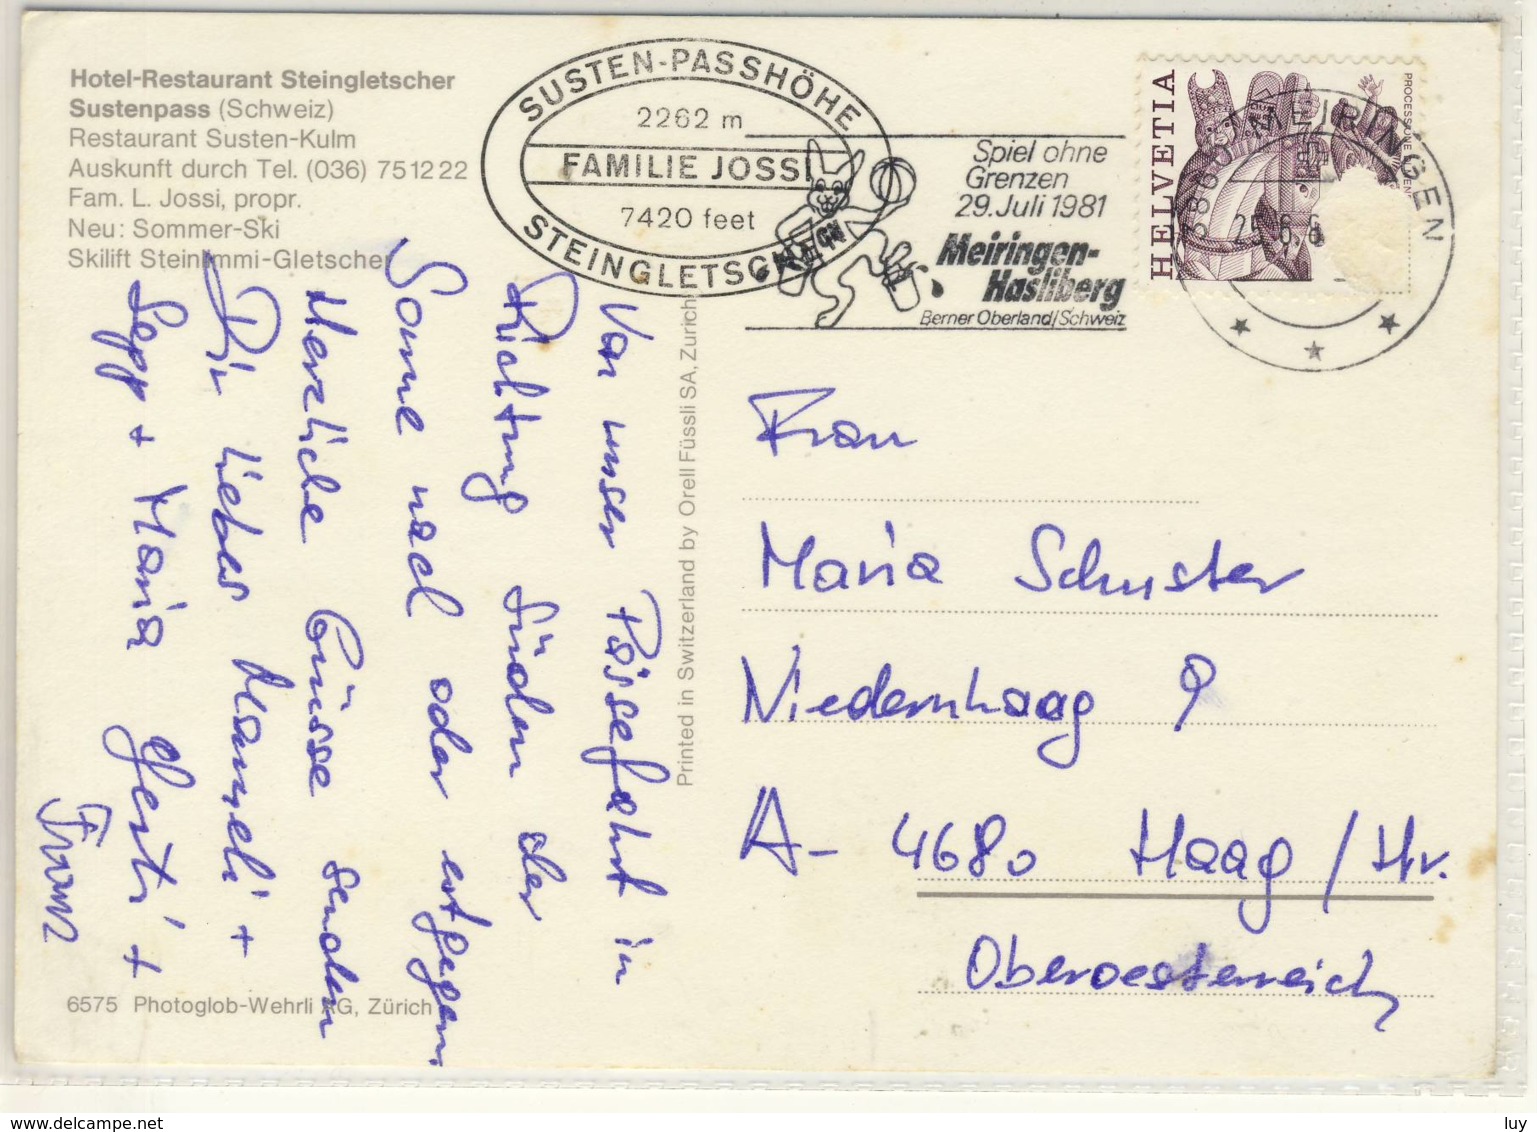 Hotel-Restaurant Steingletscher
Sustenpass (Schweiz)
Restaurant Susten-Kulm
Auskunft durch Tel. (036) 75 12 22
Fam. L. Jossi, propr.
Neu: Sommer-Ski
Skilift Steinlimmi-Gletscher
SUSTEN-PASSHÖHE
2262 m
FAMILIE JOSSI
7420 feet
STEINGLETSCHER
Spiel ohne
Grenzen
29. Juli 1981
Meiringen-
Hasliberg
Berner Oberland/Schweiz
HELVETIA
3860 MEIRINGEN
25.6.8
Von unser Pässefahrt in
Richtung Süden der
Sonne nach oder entgegen
Herzliche Grüsse senden
Dir liebes Mameli +
Sepp + Maria Gerti +
Franz
Printed in Switzerland by Orell Füssli SA, Zürich
Frau
Maria Schuster
Niedernhaag 9
A- 4680 Haag / Hr.
Oberoesterreich
6575 Photoglob-Wehrli AG, Zürich
www.delcampe.net
luy